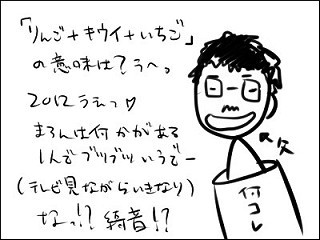 「りんご+キウイ+いちご」
の意味は
2012うえっ♡
まろんは付かがある
1んでブツブツいうでー
(テレビ見ながらいきなり)
なっ!? 綺音!?
付コレ